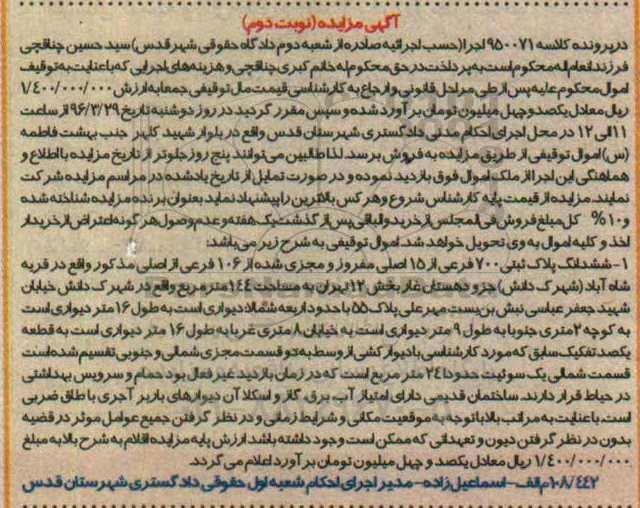 آگهی مزایده (نوبت دوم)
درپرونده کلاسه ۹۵۰۰۷۱ اجرا (حسب اجرائیه صادره از شعبه دوم دادگاه حقوقی شهرقدس) سید حسین چناقچی
فرزند انعام اله محکوم است به پرداخت در حق محکوم له خانم کبری چناقچی و هزینه های اجرایی که باعنایت به توقیف
اموال محکوم علیه پس از طی مراحل قانونی وارجاع به کارشناسی قیمت مال توقیفی جمعا به ارزش ۱/۴۰۰/۰۰۰/۰۰۰
ریال معادل یکصد و چهل میلیون تومان بر آورد شده و سپس مقرر گردید در روز دوشنبه تاریخ ۹۶/۳/۲۹ از ساعت
۱۱ الی ۱۲ در محل اجرای احکام مدنی دادگستری شهرستان قدس واقع در بلوار شهید کلهر جنب بهشت فاطمه
(س) اموال توقیفی از طریق مزایده به فروش برسد. لذا طالبین می توانند پنج روز جلوتر از تاریخ مزایده با اطلاع و
هماهنگی این اجرا از ملک اموال فوق بازدید نموده و در صورت تمایل از تاریخ یادشده در مراسم مزایده شرکت
نمایند. مزایده از قیمت پایه کارشناس شروع و هر کس بالاترین را پیشنهاد نماید بعنوان برنده مزایده شناخته شده
و ۱۰% کل مبلغ فروش فی المجلس از خریدو الباقی پس از گذشت یک هفته و عدم وصول هر گونه اعتراض از خریدار
اخذ و کلیه اموال به وی تحویل خواهد شد. اموال توقیفی به شرح زیر می باشد:
۱- ششدانگ پلاک ثبتی ۷۰۰ فرعی از ۱۵ اصلی مفروز و مجزی شده از ۱۰۶ فرعی از اصلی مذکور واقع در قریه
شاه آباد (شهرک دانش) جزو دهستان غار بخش ۱۲ تهران به مساحت ۱۴۴ متر مربع واقع در شهرک دانش خیابان
شهید جعفر عباسی نبش بن بست مهر علی پلاک ۵۵ با حدود اربعه شمالا دیواری است به طول ۱۶ متر دیواری است
به کوچه ۲ متری جنوبا به طول ۹ متر دیواری است به خیابان ۸ متری غربا به طول ۱۶ متر دیواری است به قطعه
یکصد تفکیک سابق که مورد کارشناسی با دیوار کشی از وسط به دو قسمت مجزی شمالی و جنوبی تقسیم شده است
قسمت شمالی یک سوئیت حدودا ۲۴ متر مربع است که در زمان بازدید غیر فعال بود حمام و سرویس بهداشتی
در حیاط قرار دارند. ساختمان قدیمی دارای امتیاز آب، برق، گاز و اسکلا آن دیوارهای باربر آجری با طاق ضربی
است. با عنایت به مراتب بالا با توجه به موقعیت مکانی و شرایط زمانی و در نظر گرفتن جمیع عوامل موثر در قضیه
بدون در نظر گرفتن دیون و تعهداتی که ممکن است وجود داشته باشد ارزش پایه مزایده اقلام به شرح بالا به مبلغ
۱/۴۰۰/۰۰۰/۰۰۰ ریال معادل یکصد و چهل میلیون تومان بر آورد اعلام می گردد.
۱۰۸/۴۴۲ م الف - اسماعیل زاده - مدیر اجرای احکام شعبه اول حقوقی دادگستری شهرستان قدس